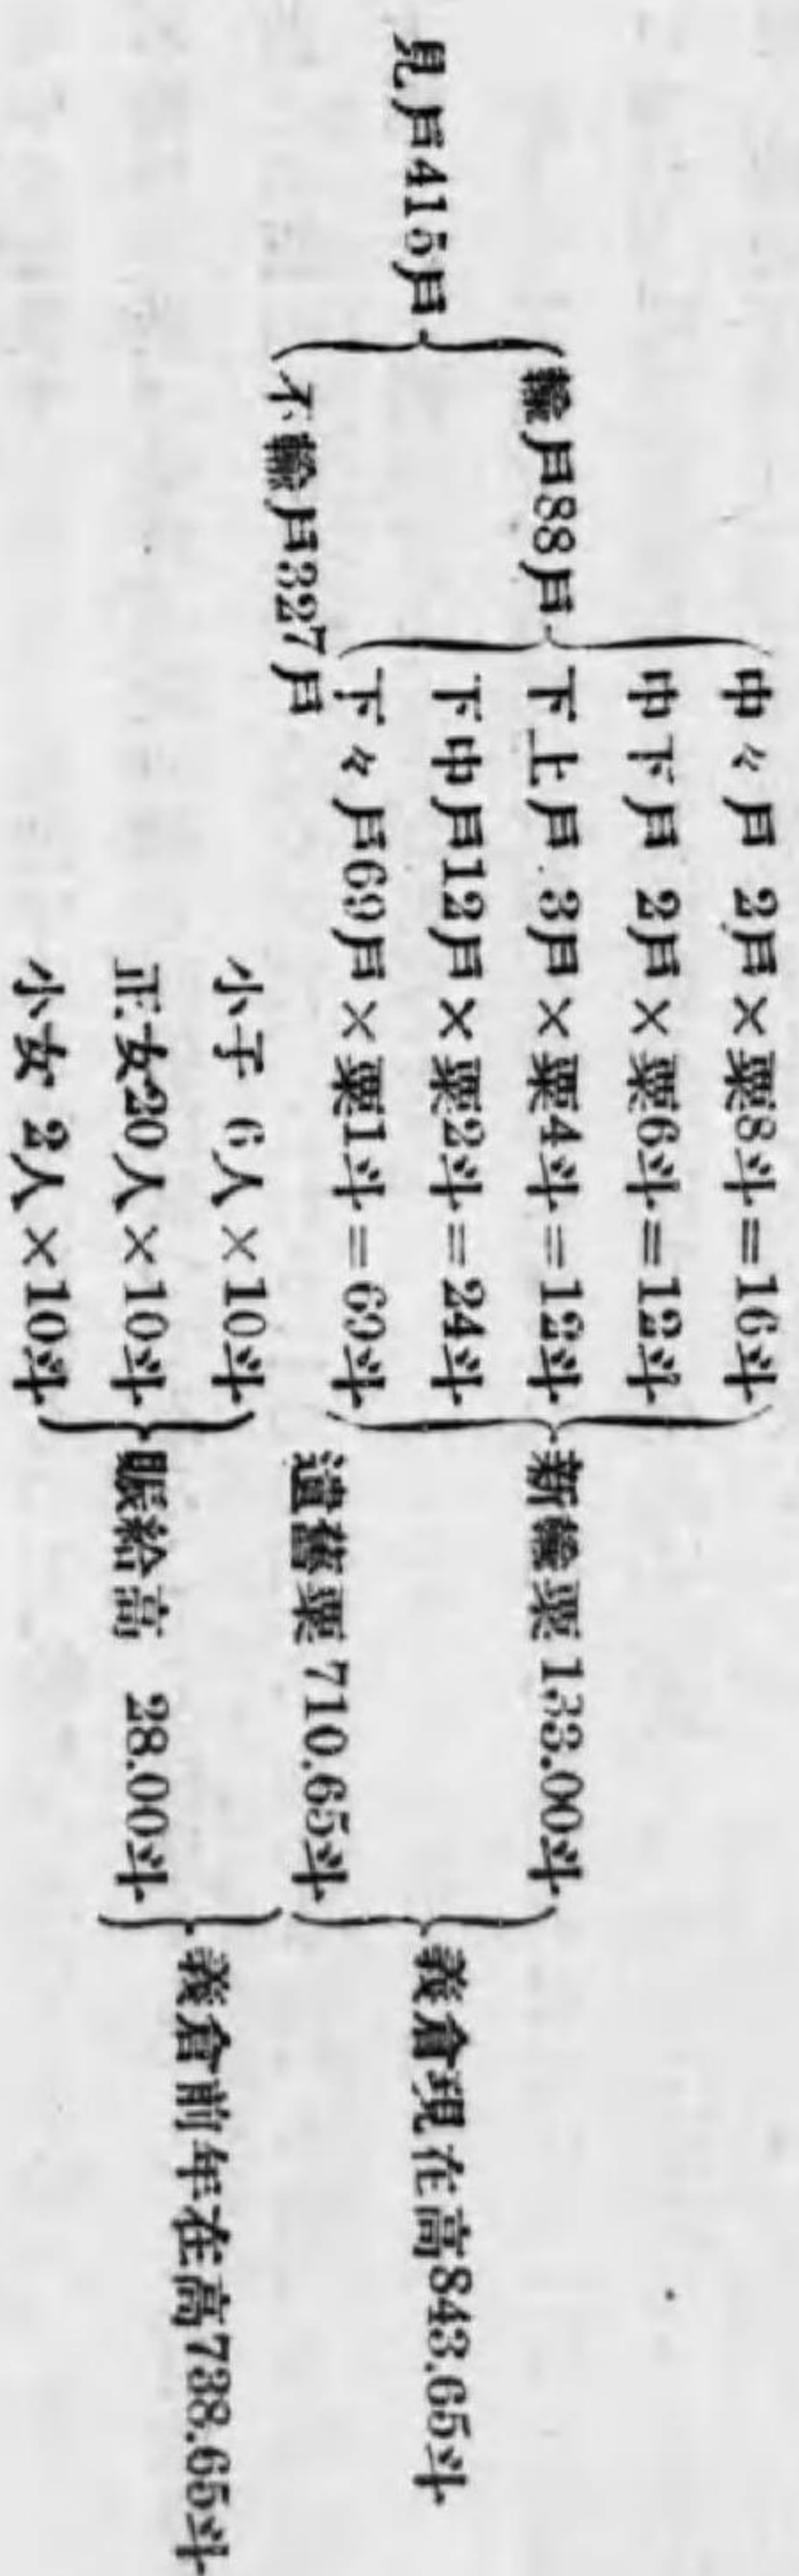 見戶415戶
輸戶88戶
不輸戶327戶
中々戶 2戶×粟8斗=16斗
中下戶 2戶×粟6斗=12斗
下上戶 3戶×粟4斗=12斗
下中戶12戶×粟2斗=24斗
下々戶69戶×粟1斗=69斗
新輸粟133.00斗
遺舊粟710.65斗
義倉現在高843.65斗
小子 6人×10斗
正女20人×10斗
小女 2人×10斗
賑給高 28.00斗
義倉前年在高738.65斗